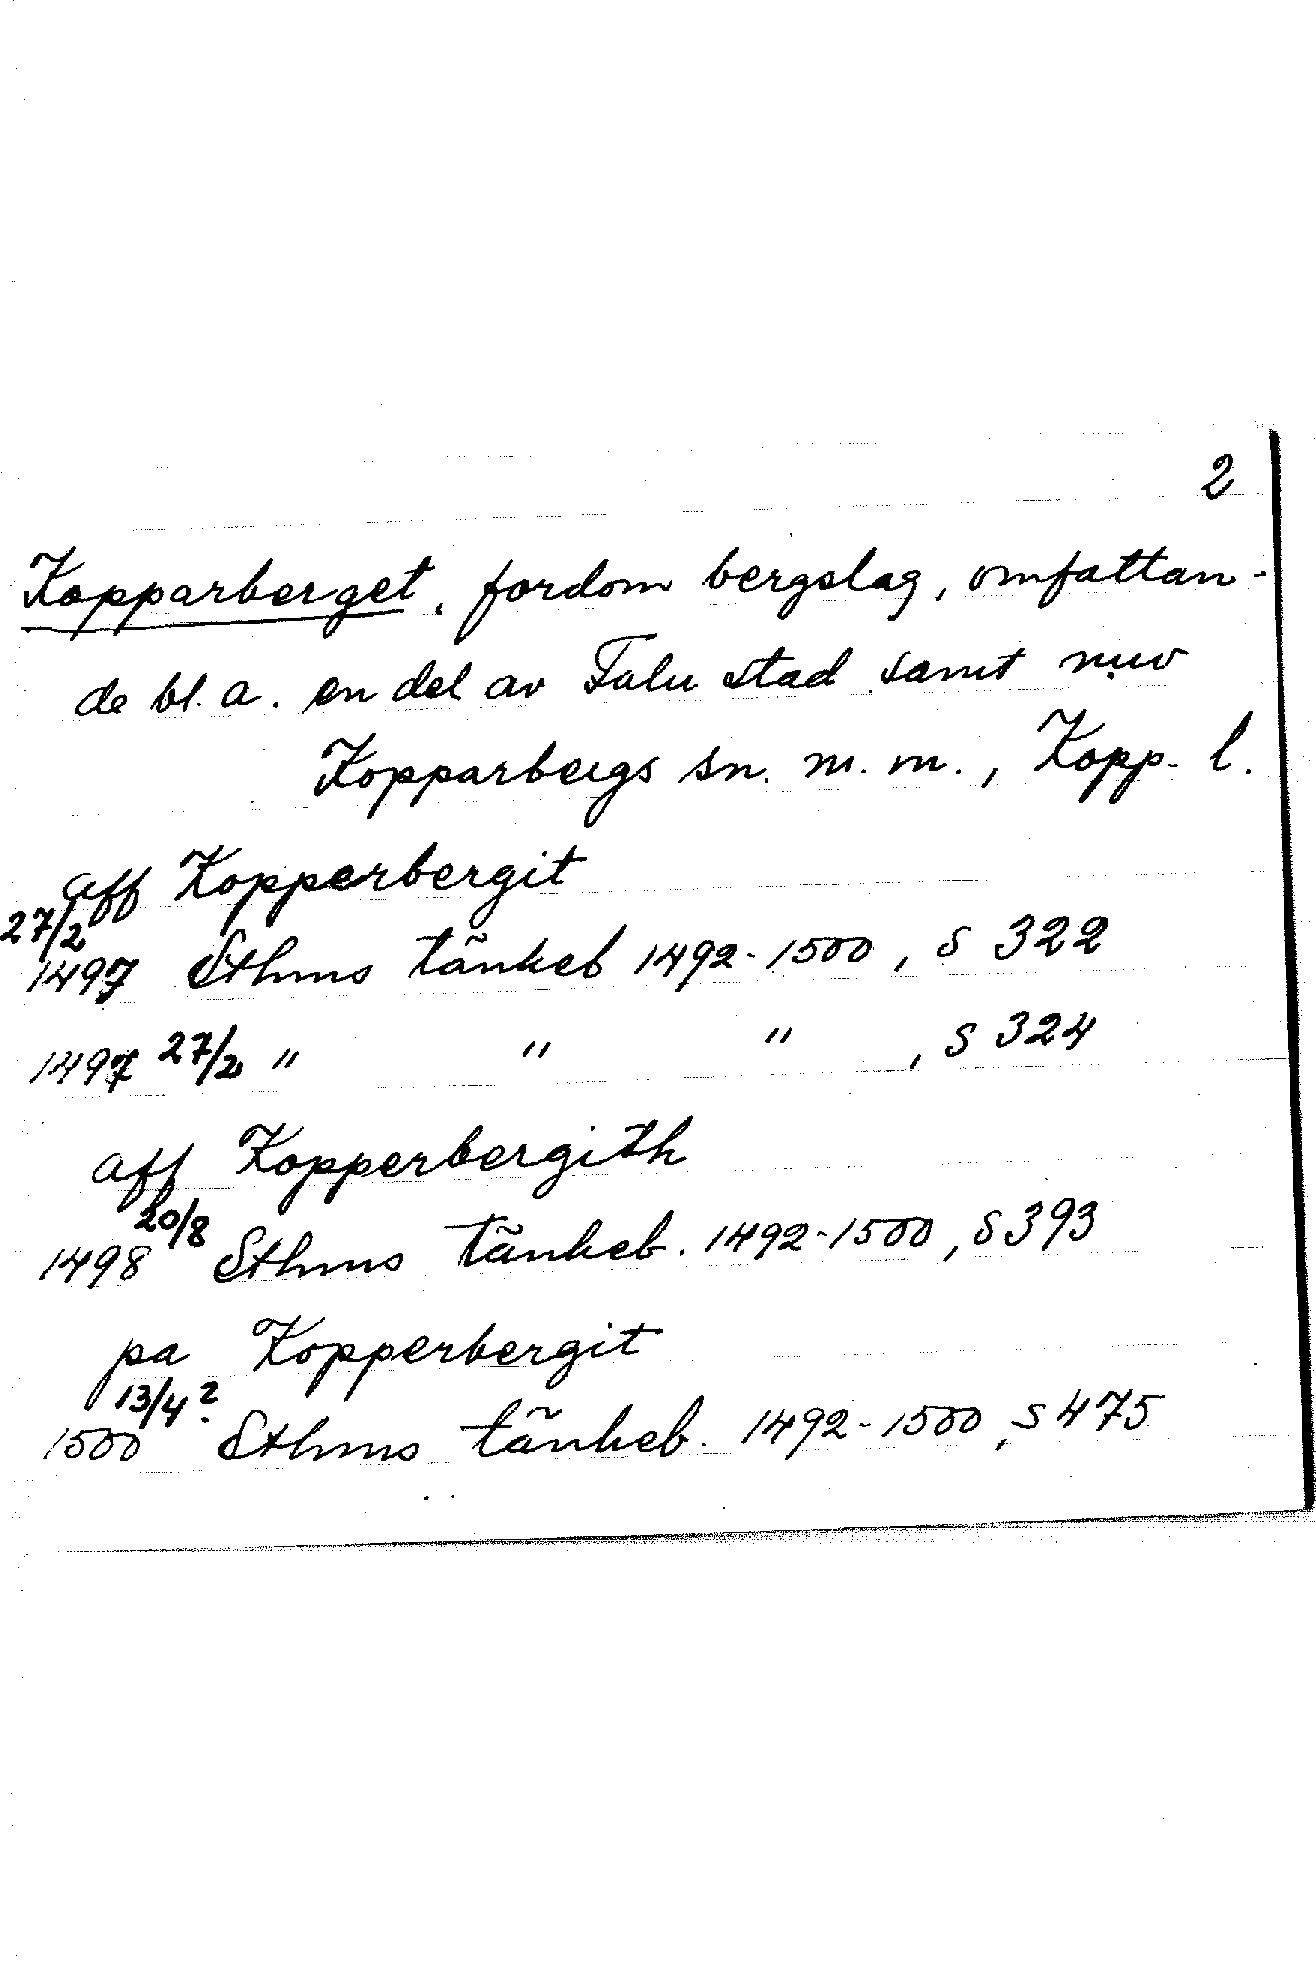 2
Kopparberget, fordom bergslag, omfattan-
de bl. a. en del av Falu stad samt nuv
Kopparbergs sn. m. m., Kopp. l.
aff Kopperbergit
27/2
1497 Sthms tänkeb 1492-1500, s 322
1497 27/2 " " " , s 324
aff Kopperbergith
20/8
1498 Sthms tänkeb. 1492-1500, s 393
pa Kopperbergit
13/4?
1500 Sthms tänkeb. 1492-1500, s 475